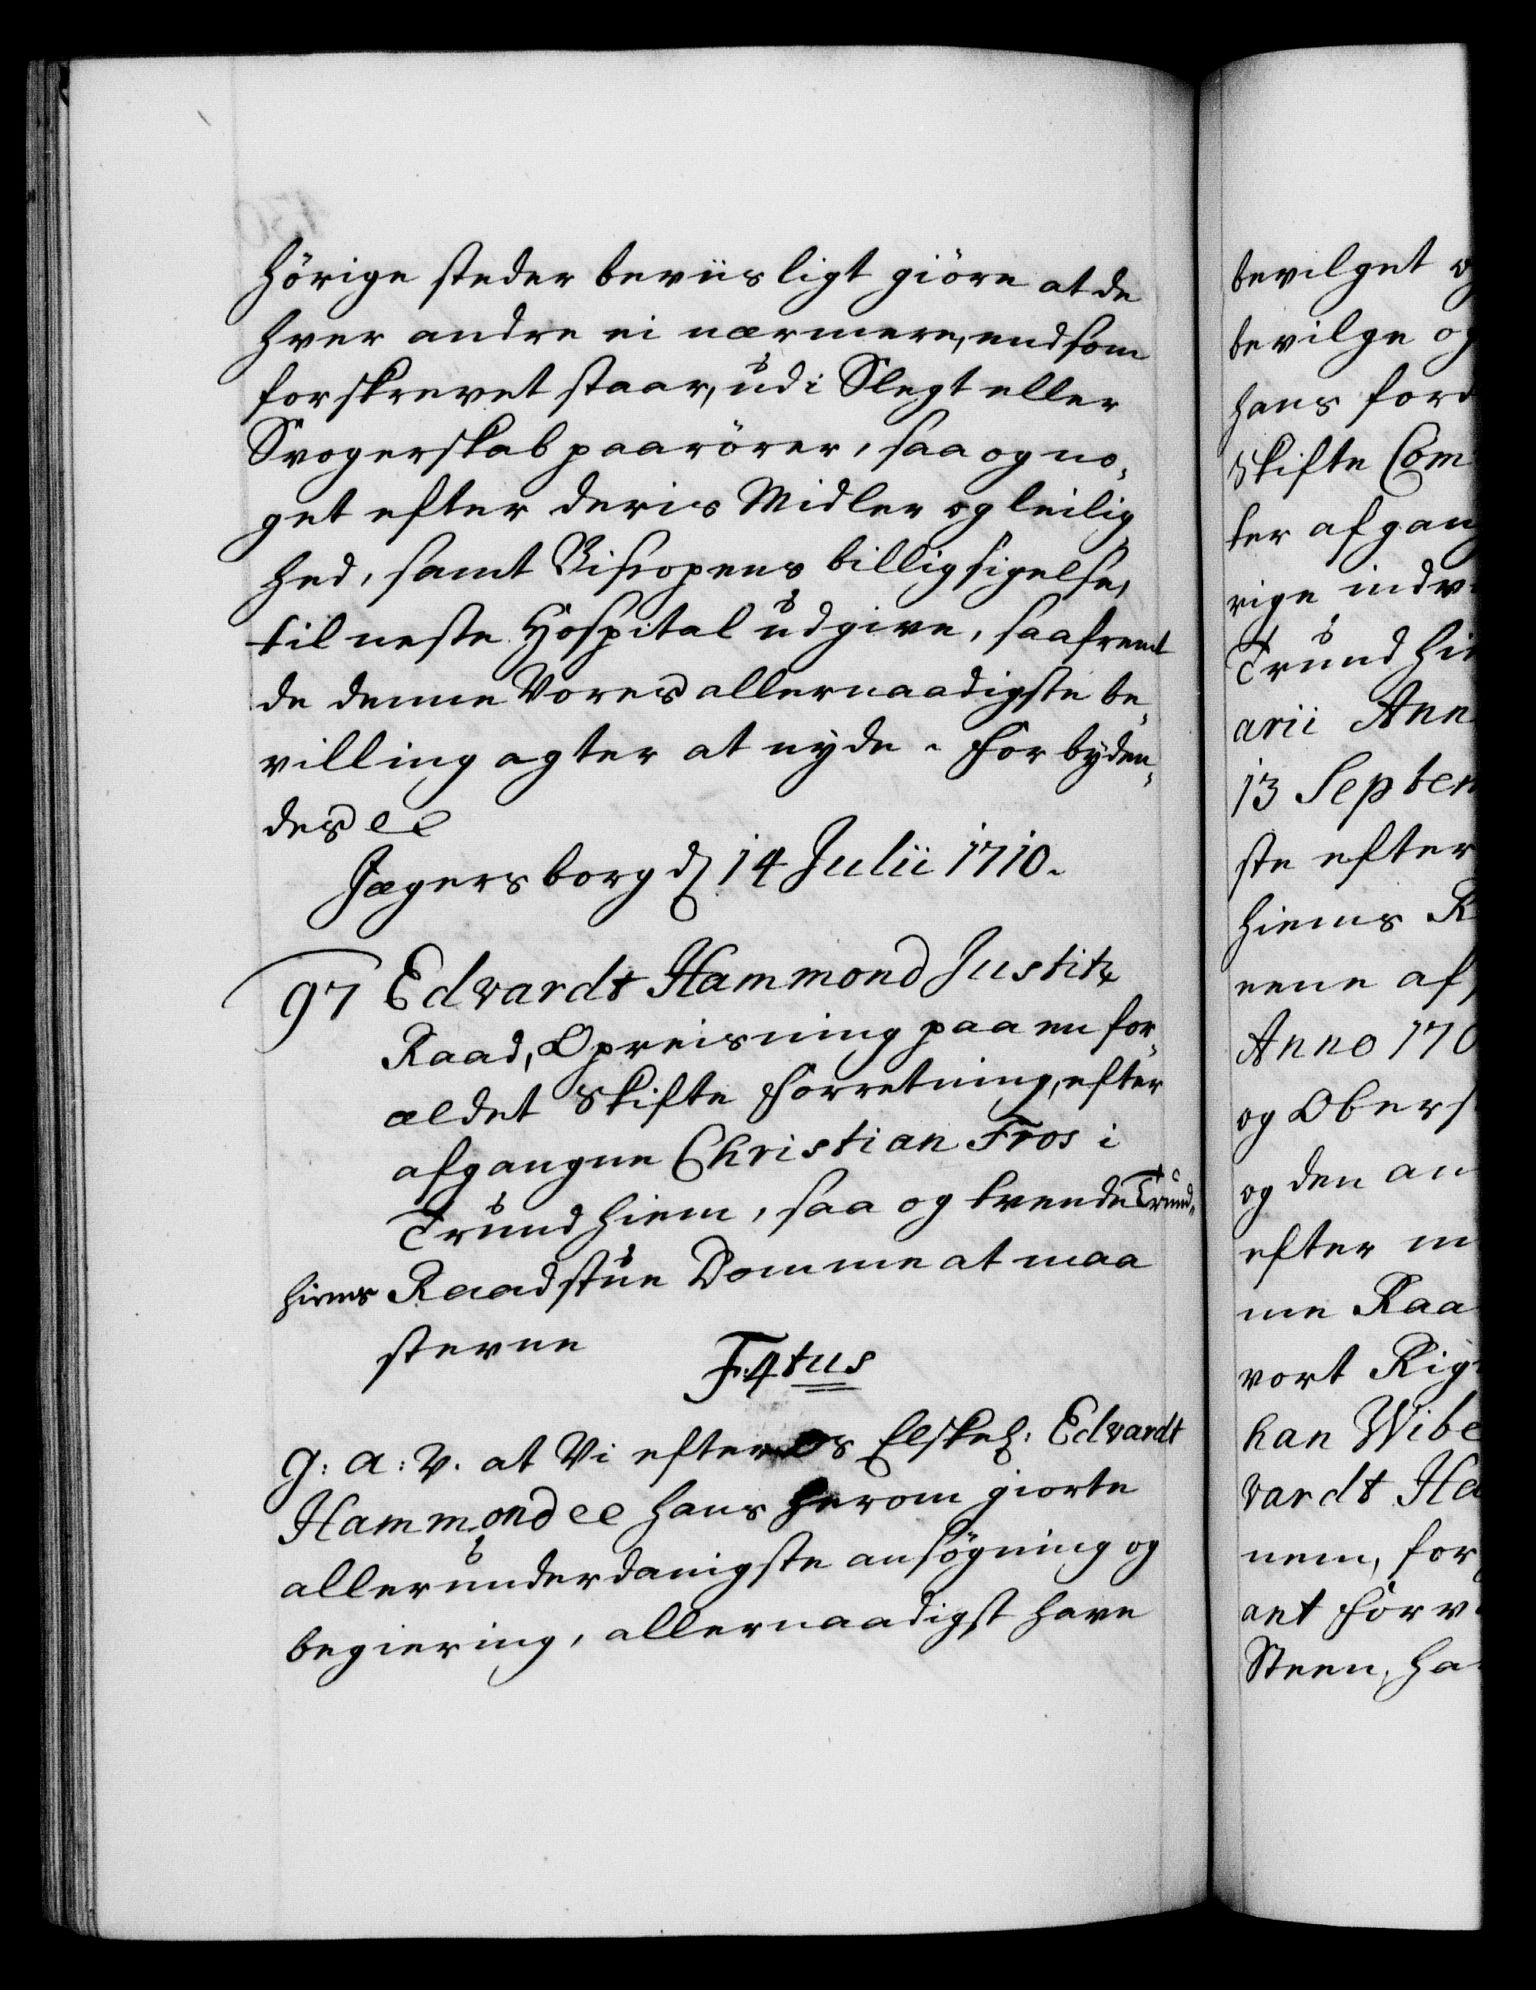 hörige steder beviisligt giöre at de
hver andre ei nærmere, end som
forskrevet staar, udi Slegt eller
Svogerskab paarörer, saa og no„
get efter deris Midler og leilig
hed, samt Biscopens billigsigelse,
til neste Hospital udgive, saafremt
de denne Vores allernaadigste be„
villing agter at nyde. Forbyden„
des etc
Jægersborg d 14 Julii 1710.
97 Edvardt Hammond Justitz
Raad, Opreisning paa en for„
ældet Skifte Forretning, efter
afgangne Christian Fros i
Trundhiem, saa og tvende Trund„
hiems Raadstue Domme at maa
stevne
F:4tus
G: A: V. at Vi efter Os Elskel: Edvardt
Hammond etc hans herom giorte
allerunderdanigste ansögning og
begiering, allernaadigst have
bevilget og
bevilge og
hans ford
Skifte Com
ter afgang
rige indv
Trundhie
arii Ann
13 Septem
ste efter
hiems R
nene af
Anno 170
og Obers
og den an
efter m
me Raa
vort Rig
han Wibe
vardt Ha
nem, for
ant Forv
Steen, ha